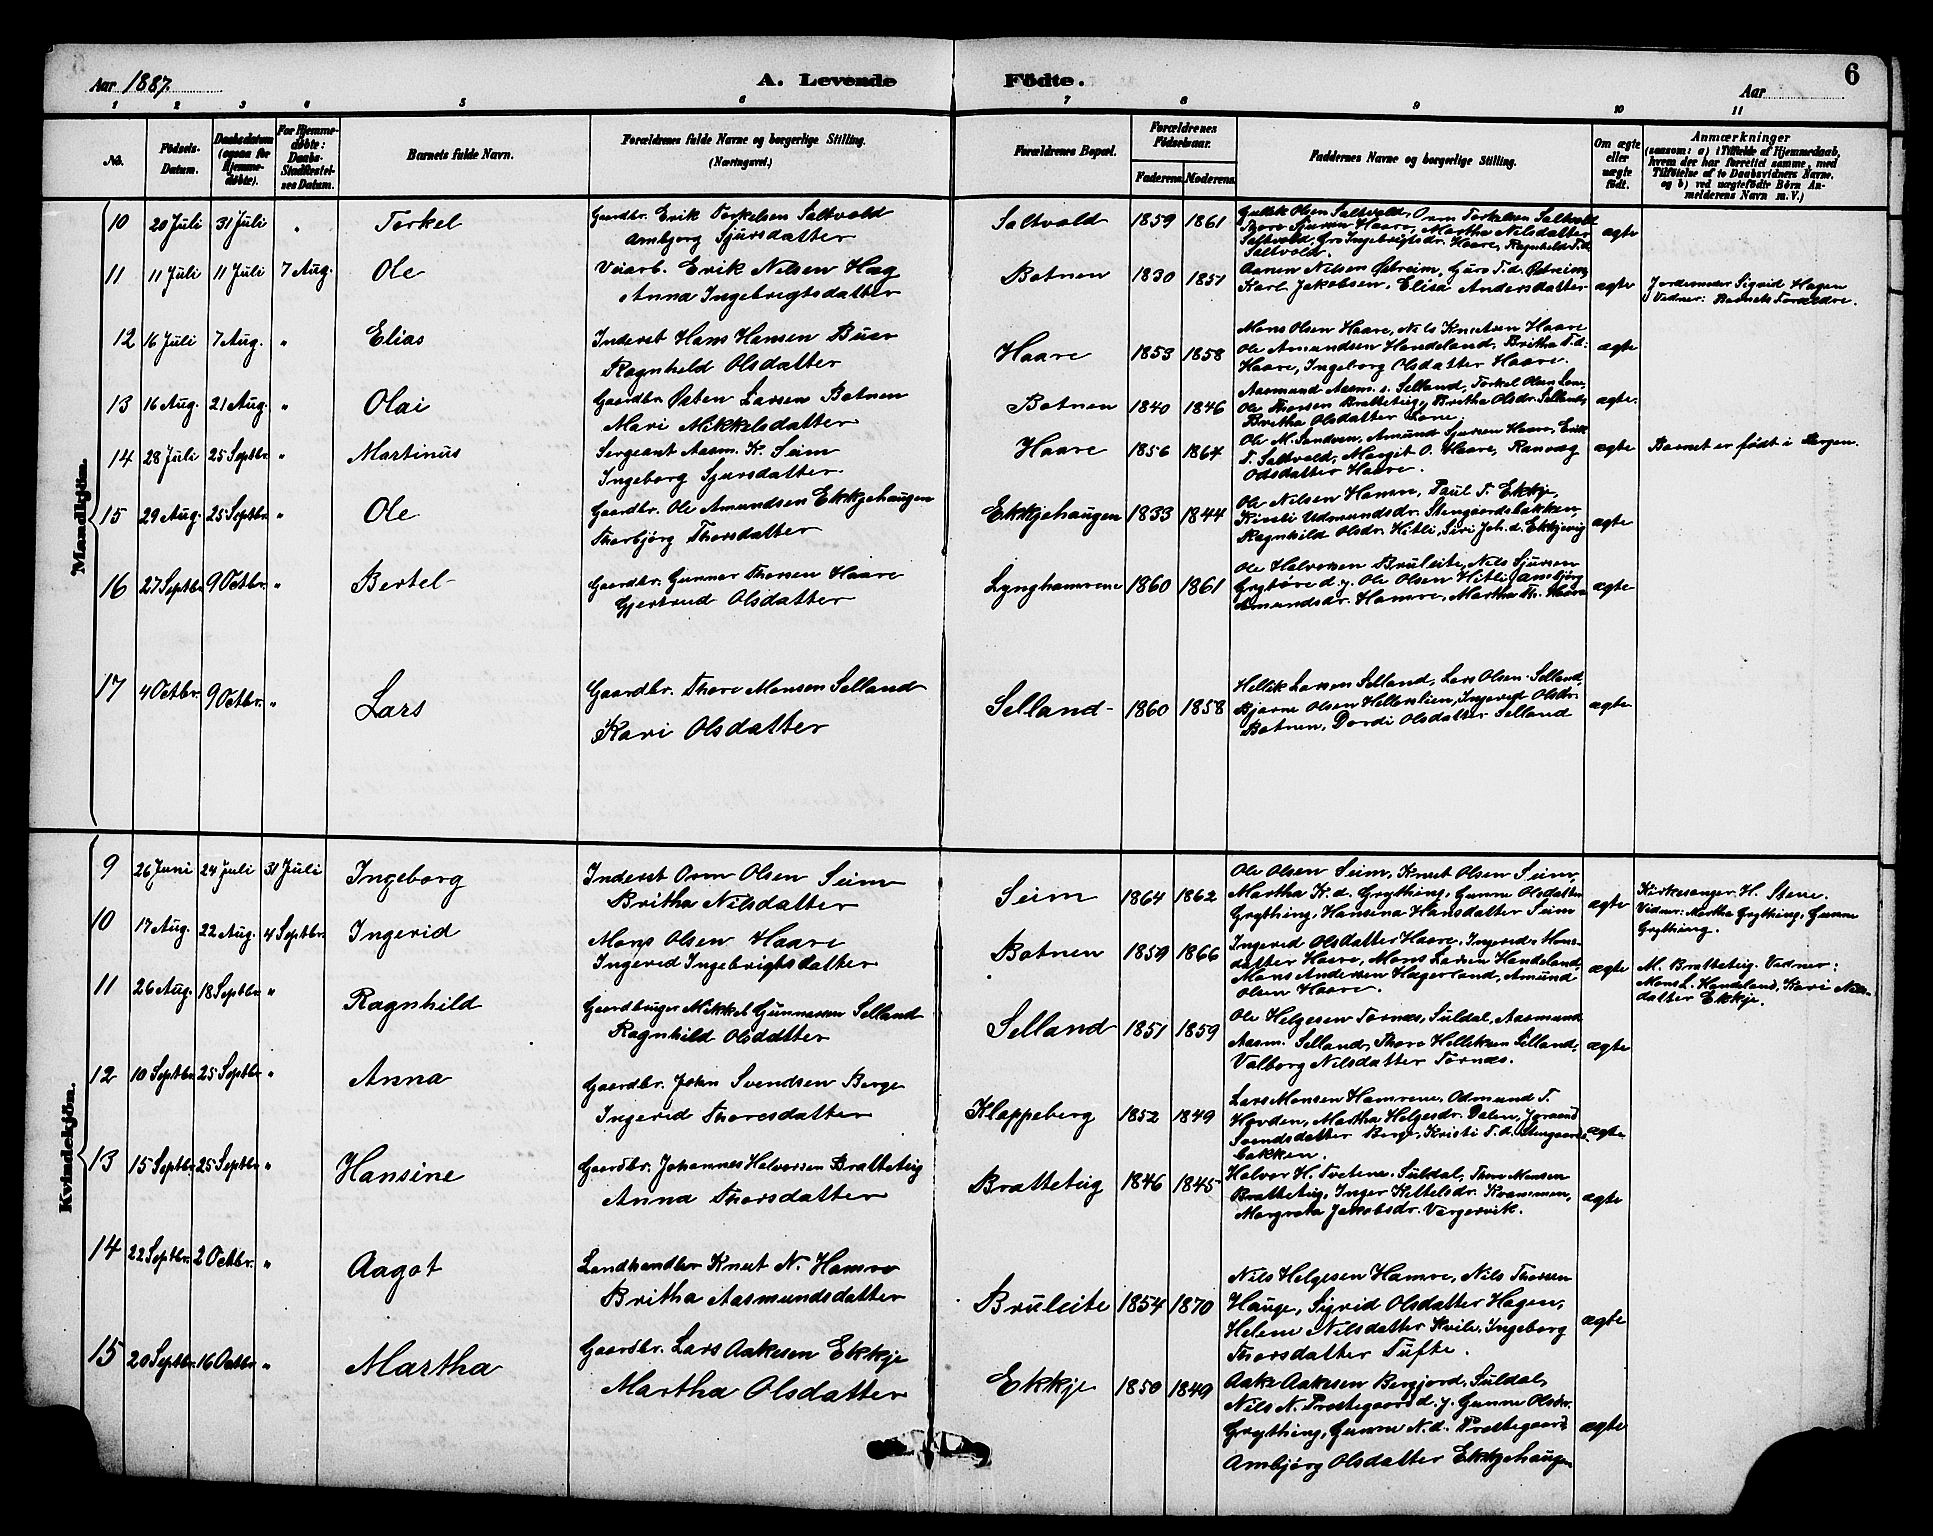 Aar 1887. A. Levende Födte. Aar 6
1 2 3 4 5 6 7 8 9 10 11
No. Födsels-Datum. Daabsdatum (ogsaa for Hjemmedöbte). For Hjemmedöbte: Daabs-Stadfæstelsens Datum. Barnets fulde Navn. Forældrenes fulde Navne og borgerlige Stilling. (Næringsvei.) Forældrenes Bopæl. Forældrenes Födselsaar. Faderens. Moderens. Faddernes Navne og borgerlige Stilling. Om ægte eller uægte födt. Anmærkninger (saasom: a) i Tilfælde af Hjemmedaab, hvem der har forrettet samme, med Tilföielse af to Daabsvidners Navne. og b) ved uægtefödte Börn Anmelderens Navn m. V.)
Mandkjön.
10 20 Juli 31 Juli " Torkel Gaardbr. Erik Torkelsen Saltvold
Ambjorg Sjursdatter
Saltvold 1859 1861 Gullik Olsen Saltvold, Orm Torkelsen Saltvold
Thore Sjursen Haare, Martha Nilsdatter
Saltvold, Gro Ingebrigtsdr. Haare, Ragnhild T.d.
Saltvold. ægte
11 11 Juli 11 Juli 7 Aug. Ole Veiarb. Erik Nilsen Hag
Anna Ingebrigtsdatter
Botnen 1830 1851 Aanen Nilsen Østreim, Guro T.d. Østreim,
Karl Jakobsen, Elisa Andersdatter ægte Jordemoder Sigrid Hagen
Vidner: Barnets Forældre.
12 16 Juli 7 Aug. " Elias Inderst Hans Hansen Buer
Ragnhild Olsdatter
Haare 1853 1858 Mons Olsen Haare, Nils Knutsen Haare
Ole Amundsen Handeland, Britha T.d.
Haare, Ingeborg Olsdatter Haare. ægte
13 16 Aug. 21 Aug. " Olai Gaardbr. Østen Larsen Botnen
Mari Mikkelsdatter
Botnen 1840 1846 Aasmund Aasm. s. Selland, Torkel Olsen Lone,
Ole Thorsen Bratteteig, Britha Olsdr. Selland,
Britha Olsdatter Lone. ægte.
14 28 Juli 25 Septbr. " Martinus Sergeant Aasm. K. Seim
Ingeborg Sjursdatter
Haare 1856 1864 Ole M. Sandven, Amund Sjursen Haare, Erik
T. Saltvold, Margit O. Haare, Ranvæg
Odsdatter Haare. ægte Barnet er født i Bergen.
15 29 Aug. 25 Septbr. " Ole Gaardbr. Ole Amundsen Ekkjehaugen
Thorbjørg Thorsdatter
Ekkjehaugen 1833 1844 Ole Nilsen Hamre, Paul T. Ekkje,
Kirsti Udmundsdr. Stengaardsbakken,
Ragnhild Olsdr. Hitli, Siri Joh.d. Ekkjevig ægte
16 27 Septbr. 9 Octbr. " Bertel Gaardbr. Gunnar Thorsen Haare
Gjertrud Olsdatter
Lynghamrene 1860 1861 Ole Halvorsen Bruleite, Nils Sjursen
Grytøre d.y. Ole Olsen Hitli, Ambjørg
Amundsdr. Hamre, Martha Th. Haare ægte
17 4 Octbr. 9 Octbr. " Lars Gaardbr. Thore Monsen Selland
Kari Olsdatter
Selland 1860 1858 Hellik Larsen Selland, Lars Olsen Selland,
Bjarne Olsen Hellerslien, Ingerid Olsdr.
Botnen, Dordi Olsdatter Selland ægte
Kvindekjön.
9 26 Juni 24 Juli 31 Juli Ingeborg Inderst Orm Olsen Seim
Britha Nilsdatter
Seim 1864 1862 Ole Olsen Seim, Knut Olsen Seim,
Martha K.d. Grything, Gunne Olsdatter
Grything, Hansina Hansdatter Seim ægte Kirkesanger H. Stene.
Vidner: Martha Grything, Gunne
Grything.
10 17 Aug. 22 Aug. 4 Septbr. Ingerid Mons Olsen Haare
Ingerid Ingebrigtsdatter
Botnen 1859 1866 Ingerid Olsdatter Haare, Ingerid Mons-
datter Haare, Mons Larsen Handeland,
Mons Andersen Hagerland, Amund
Olsen Haare. ægte M. Bratteteig. Vidner:
Mons L. Handeland, Kari Nils-
datter Ekkje.
11 26 Aug. 18 Septbr. " Ragnhild Gaardbruger Mikkel Gunnarsen Selland
Ragnhild Olsdatter
Selland 1851 1859 Ole Helgesen Tornæs, Suldal, Aasmund
Aasm. Selland, Thore Helliksen Selland,
Valborg Nilsdatter Tornæs. ægte
12 10 Septbr. 25 Septbr. " Anna Gaardbr. John Svendsen Berge
Ingerid Thoresdatter
Klappeberg 1852 1849 Lars Monsen Hamrene, Odmund T.
Horden, Martha Helgesdr. Dalen, Joraand
Svendsdatter Berge, Kristi T.d. Stengaards-
bakken. ægte
13 15 Septbr. 25 Septbr. " Hansine Gaardbr. Johannes Halvorsen Bratteteig
Anna Thorsdatter
Bratteteig 1846 1845 Halvor H. Tvetene, Suldal, Thore Monsen
Bratteteig, Inger Kittelsdr. Krammen,
Margreta Jakobsdr. Vargervik. ægte
14 22 Septbr. 2 Octbr. " Aagot Landhandler Knut N. Hamre
Britha Aasmundsdatter
Bruleite 1854 1870 Nils Helgesen Hamre, Nils Thorsen
Hauge, Sigrid Olsdatter Hagen,
Helene Nilsdatter Kvile, Ingeborg
Thorsdatter Tufte. ægte
15 20 Septbr. 16 Octbr. " Martha Gaardbr. Lars Aakesen Ekkje
Martha Olsdatter
Ekkje 1850 1849 Aake Aakesen Bergjord, Suldal,
Nils N. Prestegaard d.y. Gunne Olsdr.
Grything, Gunne N.d. Prestegaard
Ambjørg Olsdatter Ekkjehaugen ægte